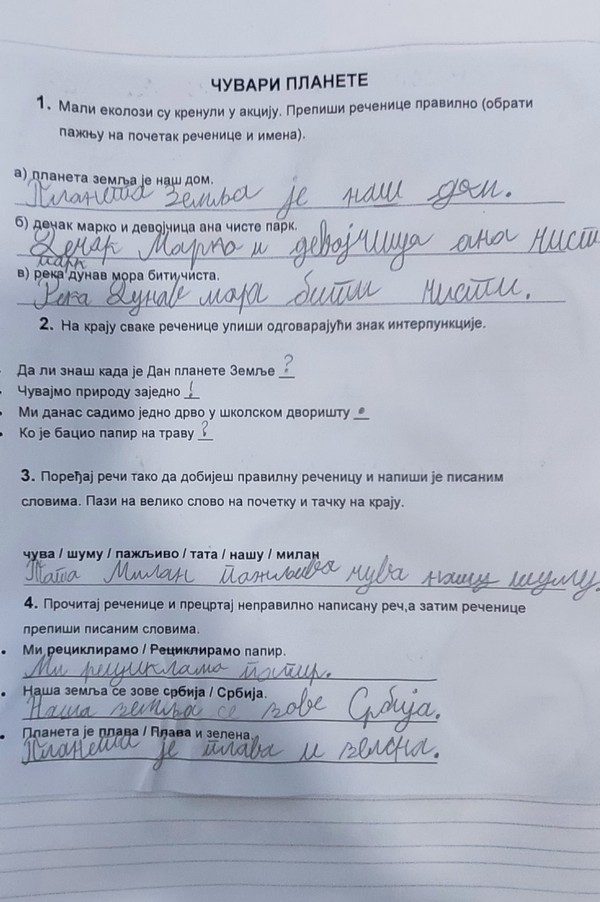 ЧУВАРИ ПЛАНЕТЕ
1. Мали еколози су кренули у акцију. Препиши реченице правилно (обрати
пажњу на почетак реченице и имена).
а) планета земља је наш дом.
Планета Земља је наш дом.
б) дечак марко и девојчица ана чисте парк.
Дечак Марко и девојчица ана чисти
парк
в) река дунав мора бити чиста.
Река Дунав мора бити чисти.
2. На крају сваке реченице упиши одговарајући знак интерпункције.
Да ли знаш када је Дан планете Земље ?
• Чувајмо природу заједно !
• Ми данас садимо једно дрво у школском дворишту .
• Ко је бацио папир на траву ?
3. Поређај речи тако да добијеш правилну реченицу и напиши је писаним
словима. Пази на велико слово на почетку и тачку на крају.
чува / шуму / пажљиво / тата / нашу / милан
Тата Милан пажљива чува нашу шуму.
4. Прочитај реченице и прецртај неправилно написану реч,а затим реченице
препиши писаним словима.
• Ми рециклирамо / Рециклирамо папир.
Ми папир.
• Наша земља се зове србија / Србија.
Наша земља се зове Србија.
• Планета је плава / Плава и зелена.
Планета је плава и зелена.